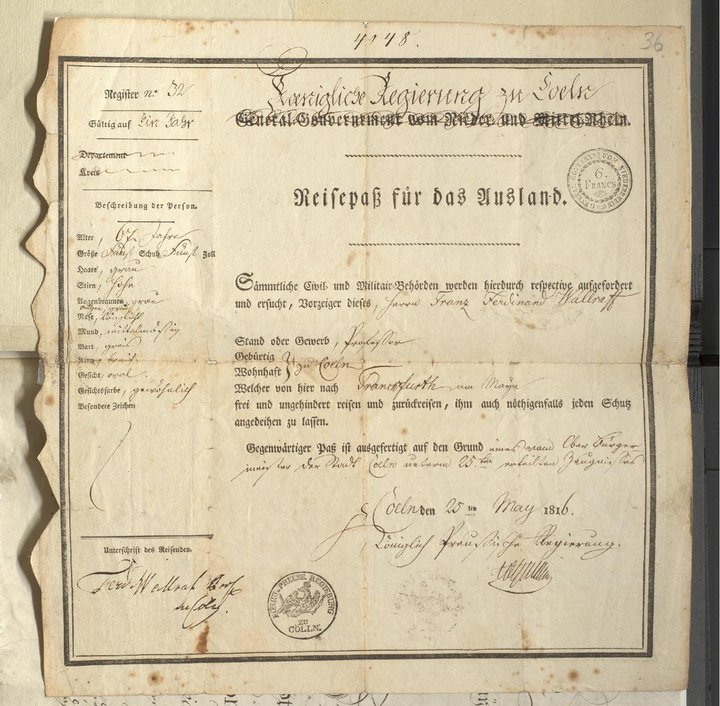 4148.
36
Register n.º 32
Gültig auf Ein Jahr
Departement
Kreis
Beschreibung der Person.
Alter, 67 Jahre
Größe Fünf Schuh Fünf Zoll
Haare, grau
Stirn, hohe
Augenbraunen, grau
Nase, länglich
Mund, mittelmäßig
Bart, greis
Kinn, breit
Gesicht, oval
Gesichtsfarbe, gewöhnlich
Besondere Zeichen
Unterschrift des Reisenden.
Ferd. Wallraf Prof.
zu Cöln.
Koenigliche Regierung zu Coeln
General-Gouvernement vom Nieder- und Mittel-Rhein.
Reisepaß für das Ausland.
6.
FRANCS
Sämmtliche Civil- und Militair-Behörden werden hierdurch respective aufgefordert
und ersucht, Vorzeiger dieses, Herrn Franz Ferdinand Wallraff
Stand oder Gewerb, Professor
Gebürtig
Wohnhaft } zu Coelln
Welcher von hier nach Francfurth am Mayn
frei und ungehindert reisen und zurückreisen, ihm auch nöthigenfalls jeden Schutz
angedeihen zu lassen.
Gegenwärtiger Paß ist ausgefertigt auf den Grund eines vom Ober Bürger
meister der Stadt Coelln unterm 25ten ertheilten Zeugnisses
Cölln den 25 ten May 1816.
Königlich Preussische Regierung.
KÖNIGL. PREUSS. REGIERUNG
ZU
CÖLLN.